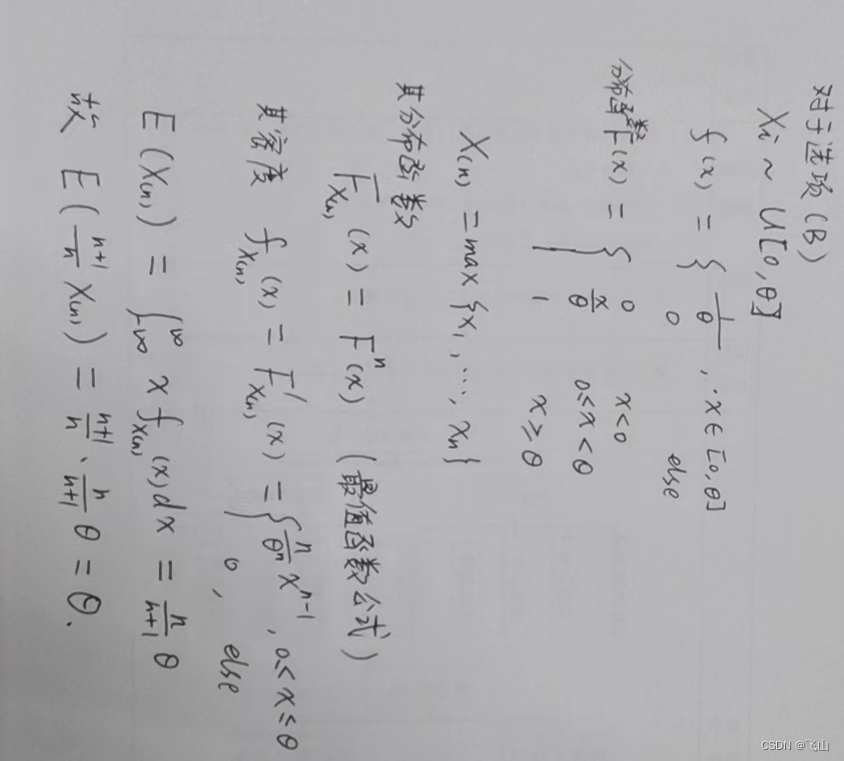 对于选项(B)
Xi ~ U[0,θ]
f(x) = { 1/θ , x∈[0,θ]
0 else
分布函数 F(x) = { 0 x<0
x/θ 0≤x<θ
1 x≥θ
X(n) = max{x1, ..., xn}
其分布函数
F_X(n)(x) = F^n(x) (最值函数公式)
其密度 f_X(n)(x) = F'_X(n)(x) = { n/θ^n x^(n-1) , 0≤x≤θ
0, else
E(X(n)) = ∫_-∞^∞ x f_X(n)(x)dx = n/(n+1) θ
故 E((n+1)/n X(n)) = (n+1)/n · n/(n+1) θ = θ.
CSDN @飞山